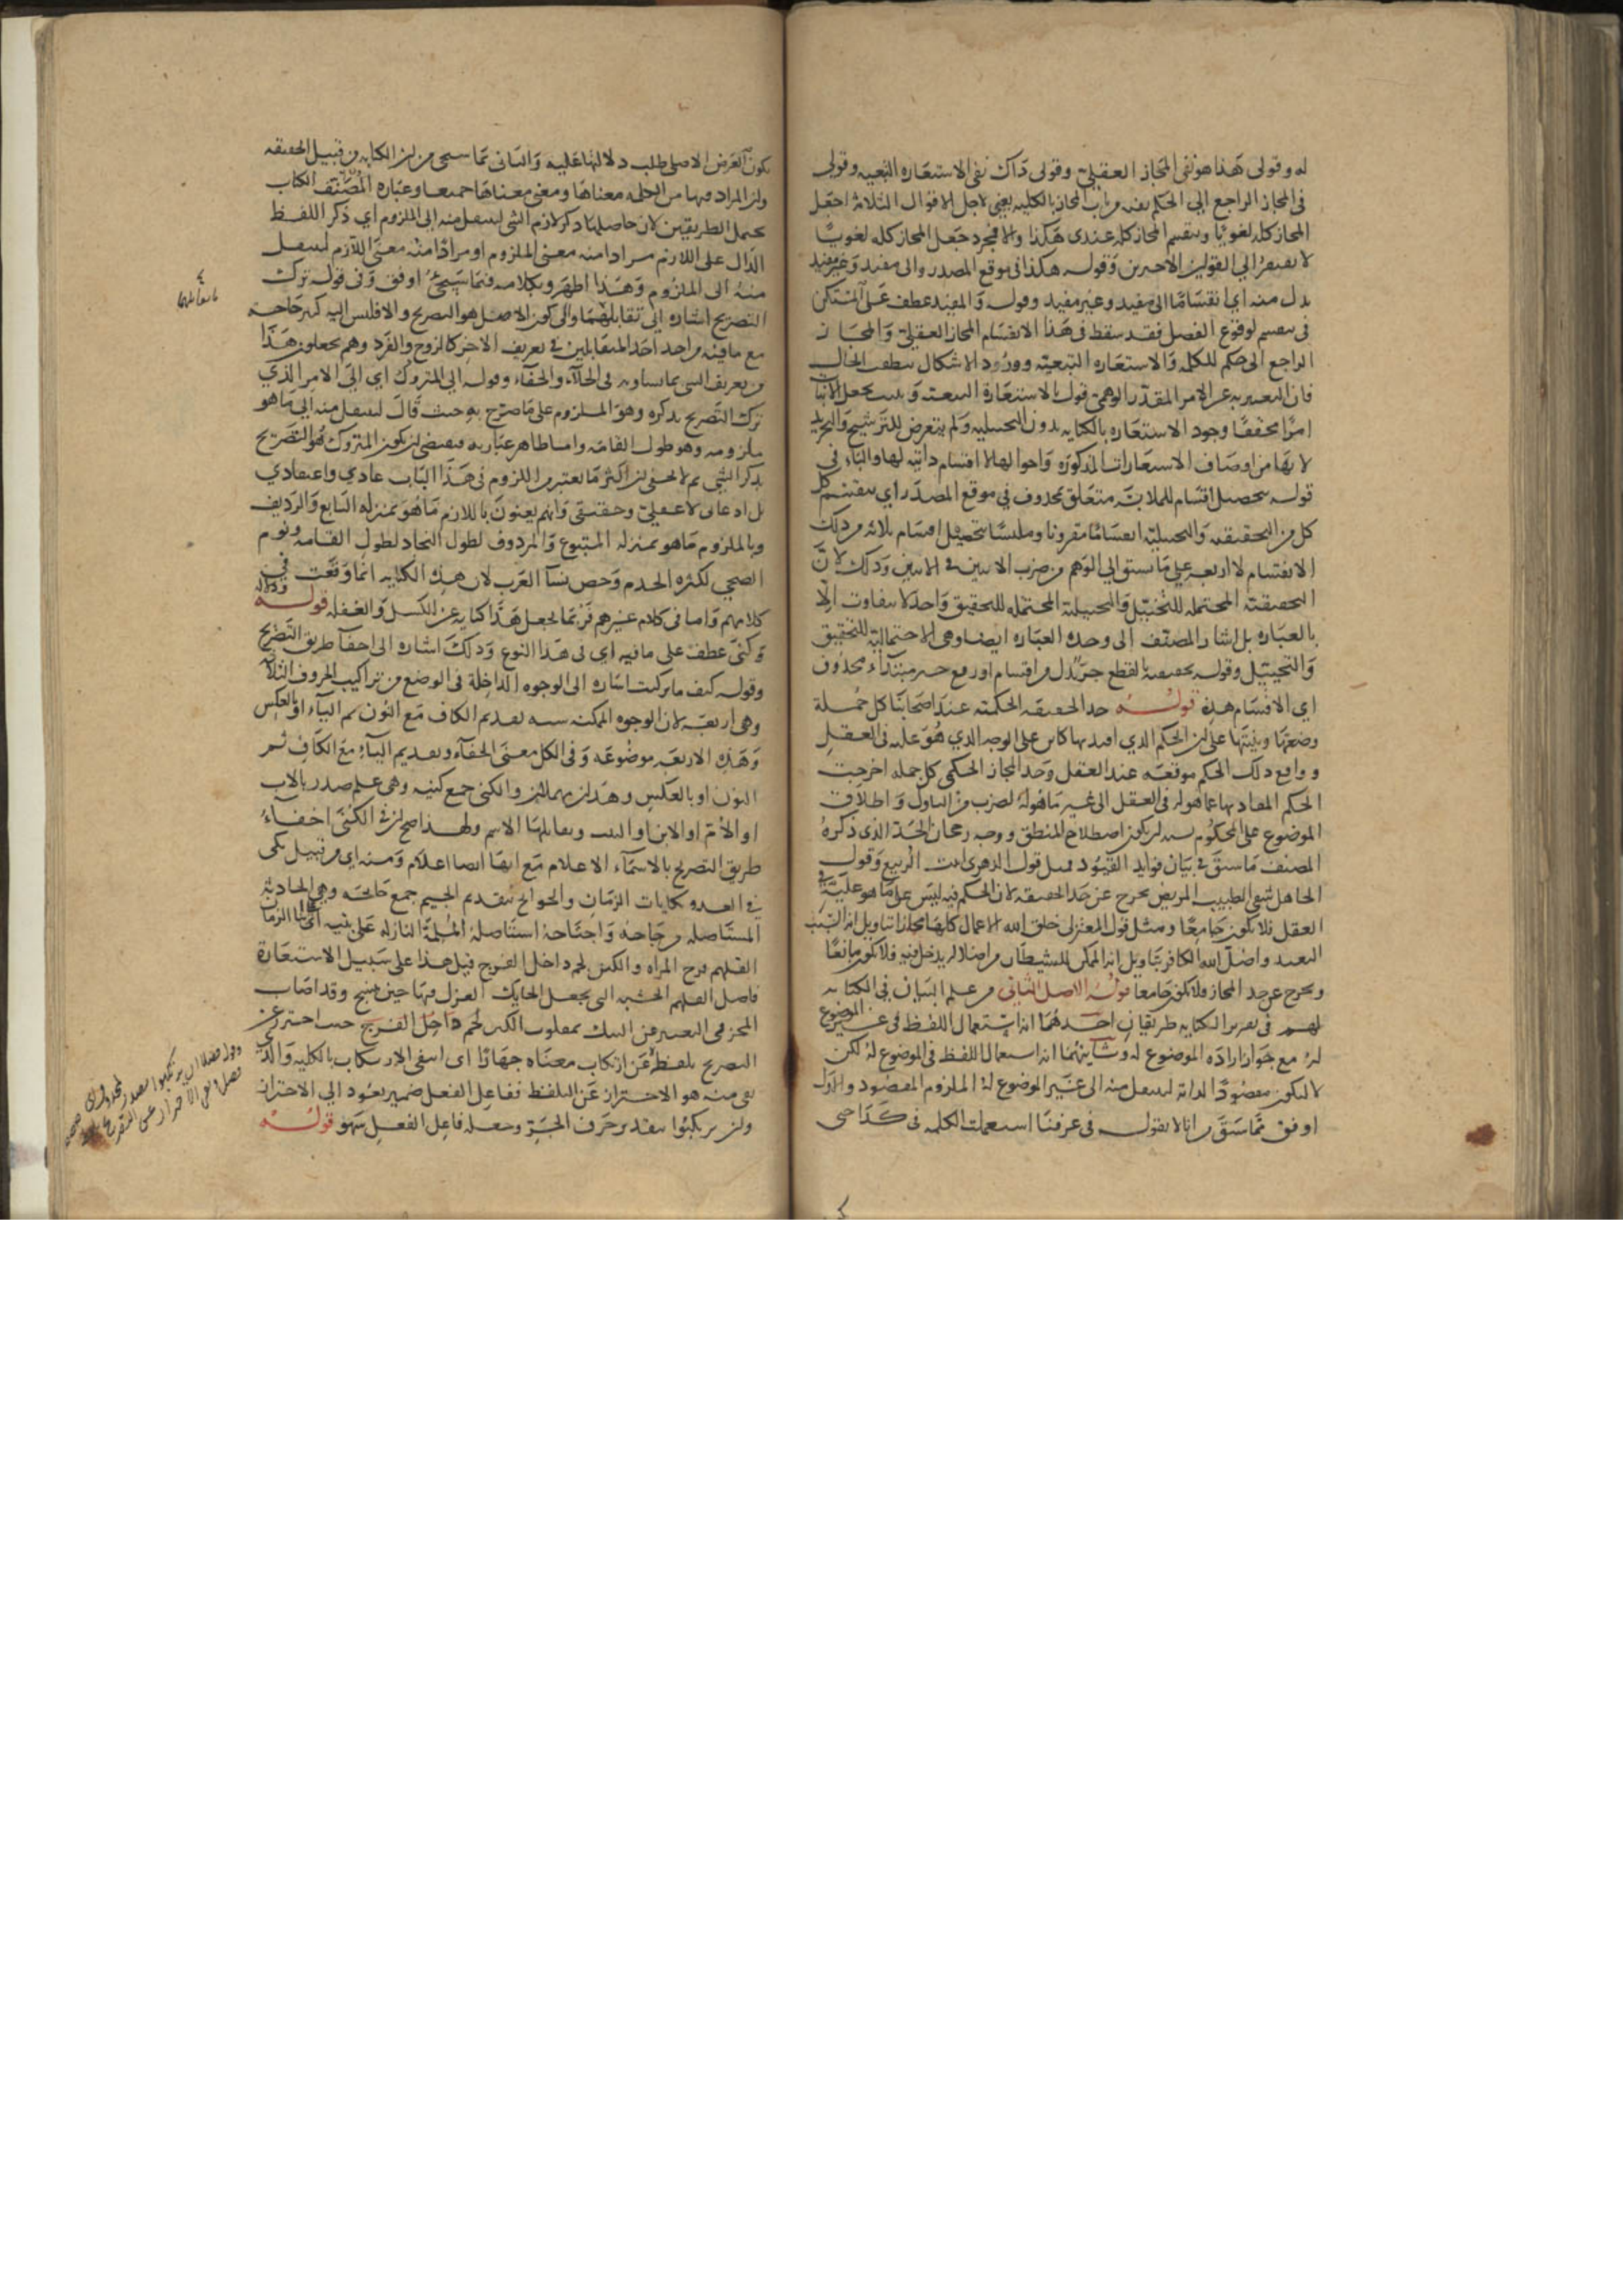 له وقولى هذا هو نفى المجاز العقلى وقولى ذاك نفى الاستعاره التبعيه وقولى
فى المجاز الراجع الى الحكم من باب المجاز بالكليه يعنى لاجل الاقوال الثلاثة اجعل
المجاز كله لغويا وينقسم المجاز كله عندى هكذا والا فمجرد جعل المجاز كله لغويا
لا يفتقر الى القولين الاخيرين وقوله هكذا فى موقع المصدر والى مفيد وغير مفيد
بدل منه اى انقساما الى مفيد وغير مفيد وقوله والمفيد عطف على المستكن
فى ينقسم لوقوع الفصل فقد سقط فى هذا الانقسام المجاز العقلى والمجاز
الراجع الى حكم للكلمه والاستعاره التبعيه وورود الاشكال
فان التعبير به عن الامر المقدر الوهمى قول بالاستعارة التبعيه
امرا محققا وجود الاستعاره بالكنايه بدون التخييليه ولم يتعرض للترشيح والتجريد
لانها من اوصاف الاستعارات المذكوره واحوالها لا اقسام ذاتيه لها والباء فى
قوله بتحصيل اقسام للملابسة متعلق بمحذوف فى موقع المصدر اى ينقسم كل
كل من التحقيقيه والتخييلية انقساما مقرونا وملبسا بتحصيل اقسام ثلاثه وذلك
الانقسام لا اربعه على ما يسبق الى الوهم من ضرب الاثنين فى الاثنين وذلك لان
التحقيقية المحتمله للتخييل والتخييلية المحتمله للتحقيق واحد لا يتفاوت الا
بالعباره بل اشار المصنف الى وحده العباره ايضا وهى الاحتمالية للتحقيق
والتخييل وقوله تحقيقيه بالقطع جر بدل من اقسام او رفع خبر مبتداء محذوف
اى الاقسام هذه قوله حد الحقيقه الحكمية عند اصحابنا كل جملة
وضعتها وبنيتها على ان الحكم الذي افيد بها كائن على الوجه الذي هو عليه فى العقل
وواقع ذلك الحكم موقعه عند العقل وحد المجاز الحكمى كل جمله اخرجت
الحكم المفاد بها عما هو له فى العقل الى غير ما هو له لضرب من التاول واطلاق
الموضوع على المحكوم اصطلاح المنطق ووجه رجحان الحد الذى ذكره
المصنف ما سبق فى بيان فوايد القيود فمثل قول الدهرى انبت الربيع وقول
الجاهل شفى الطبيب المريض يخرج عن حد الحقيقه لان الحكم فيه ليس على ما هو عليه فى
العقل فلا يكون جامعا ومثل قول المعتزلى خلق الله الاعمال كلها مجازا بتاويل انه السبب
البعيد واضل الله الكافر بتاويل انه الممكن للشيطان من اضلاله يدخل فيه فلا يكون مانعا
ويخرج عن حد المجاز فلا يكون جامعا قوله الاصل الثانى من علم البيان فى الكنايه
لهم فى تعريف الكنايه طريقان احدهما انه استعمال اللفظ فى غير الموضوع
له مع جواز ارادة الموضوع له وثانيهما انه استعمال اللفظ فى الموضوع له لكن
لا ليكون مقصودا لذاته لينتقل منه الى غير الموضوع له الملزوم المقصود والاول
اوفق مما سبق انا لا نقول فى عرفنا استعملت الكلمه فى كذا حتى
يكون الغرض الاصلى طلب دلالتها عليه والثانى مما سيجى من ان الكنايه من قبيل الحقيقه
وان المراد بها من الكلمه معناها ومعنى معناها جميعا وعباره المصنف الكتاب
يحتمل الطريقين لان حاصلها ذكر لازم الشى لينتقل منه الى الملزوم اى ذكر اللفظ
الدال على اللازم مرادا منه معنى الملزوم او مرادا منه معنى اللازم لينتقل
منه الى الملزوم وهذا اظهر وبكلامه فيما سيجى اوفق وفى قوله ترك
التصريح اشاره الى تقابلهما والى كون الاصل هو التصريح والا فليس اليه كثير حاجة
مع ما فيه من اخذ احد المتقابلين فى تعريف الاخر كالزوج والفرد وهم يجعلون هذا
من تعريف الشى بما يساويه فى الجلاء والخفاء وقوله الى المتروك اى الى الامر الذي
ترك التصريح بذكره وهو الملزوم على ما صرح به حيث قال لينتقل منه الى ما هو
ملزومه وهو طول القامه واما ظاهر عبارته فيقتضى ان يكون المتروك هو التصريح
بذكر الشى ثم لا يخفى ان اكثر ما يعتبر من اللزوم فى هذا الباب عادى واعتقادى
بل ادعائى لا عقلى وحقيقى وانهم يعنون باللازم ما هو بمنزله التابع والرديف
وبالملزوم ما هو بمنزله المتبوع والمردوف لطول النجاد لطول القامه ونووم
الضحى لكثره الخدم وخص نساء العرب لان هذه الكنايه انما وقعت فى
كلامهم واما فى كلام غيرهم فربما يجعل هذا كنايه عن الكسل والغفله قوله ودلاله
وكنى عطف على ما فيه اى فى هذا النوع وذلك اشاره الى اخفاء طريق التصريح
وقوله كيف ما تركبت اشاره الى الوجوه الداخلة فى الوضع من تراكيب الحروف الثلاثة
وهى اربعه لان الوجوه الممكنه سته تقديم الكاف مع النون ثم الياء او بالعكس
وهذه الاربعه موضوعه وفى الكل معنى الخفاء وتقديم الياء مع الكاف ثم
النون او بالعكس وهذان مهملان والكنى جمع كنيه وهى علم صدر بالاب
او الام او الابن او البنت ويقابلها الاسم ولهذا صح ان فى الكنى اخفاء
طريق التصريح بالاسماء الاعلام مع انها ايضا اعلام ومنه اى من قبيل نكى
فى العدو نكايات الزمان والجوائح بتقديم الجيم جمع جائحه وهى الحادثة
المستاصله من جاحه واجتاحه استاصله الملمة النازله على بنيه اى ابناء الزمان
القلهم فرج المراه والكين لحم داخل الفرج قيل هذا على سبيل الاستعارة
فاصل القلهم الخشبه التى يجعل الحايك الغزل فيها حين ينسج وقد اصاب
المحز فى التعبير عن النيك بمقلوب الكين لحم داخل الفرج حيث احترز عن
التصريح بلفظه عن ارتكاب معناه جهارا اى انتفى الارتكاب بالكليه والذى
بقى منه هو الاحتراز عن التلفظ ففاعل الفعل ضمير يعود الى الاحتراز
وان يرتكبوا بتقدير حرف الجر وجعله فاعل الفعل سهو قوله